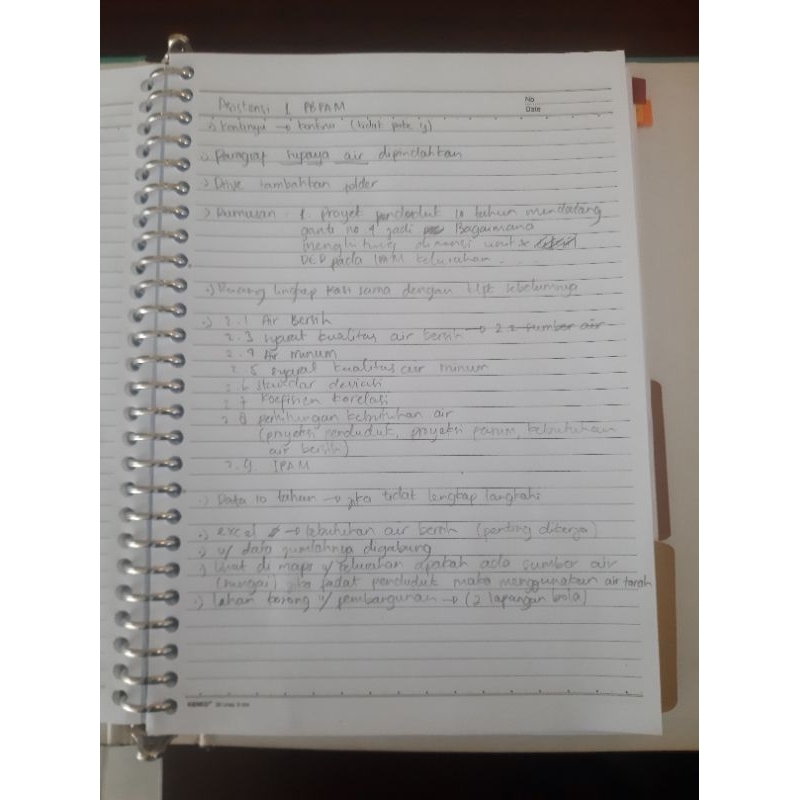 Asistensi 1 PBPAM
No
Date
.) Kontinyu → kontinu (tidak pake y)
.) Paragraf supaya air dipindahkan
.) Drive tambahkan folder
.) Rumusan : 1. Proyek penduduk 10 tahun mendatang
ganti no 4 jadi Bagaimana
menghitung dimensi unit &
DED pada IPAM kelurahan...
.) Ruang lingkup sama dengan sebelumnya
.) 2.1 Air Bersih
2.3 syarat kualitas air bersih → 2.2 sumber air
2.4 Air minum
2.5 syarat kualitas air minum
2.6 Standar deviasi
2.7 Koefisien korelasi
2.8 perhitungan kebutuhan air
(proyeksi penduduk, proyeksi fasum, kebutuhan
air bersih)
2.9 IPAM
.) Data 10 tahun → jika tidak lengkap langkahi
.) excel → kebutuhan air bersih (penting dikerja)
.) u/ data jumlahnya digabung
.) Lihat di maps u/ kelurahan apakah ada sumber air
(sungai) jika padat penduduk maka menggunakan air tanah
.) lahan kosong u/ pembangunan → (2 lapangan bola)